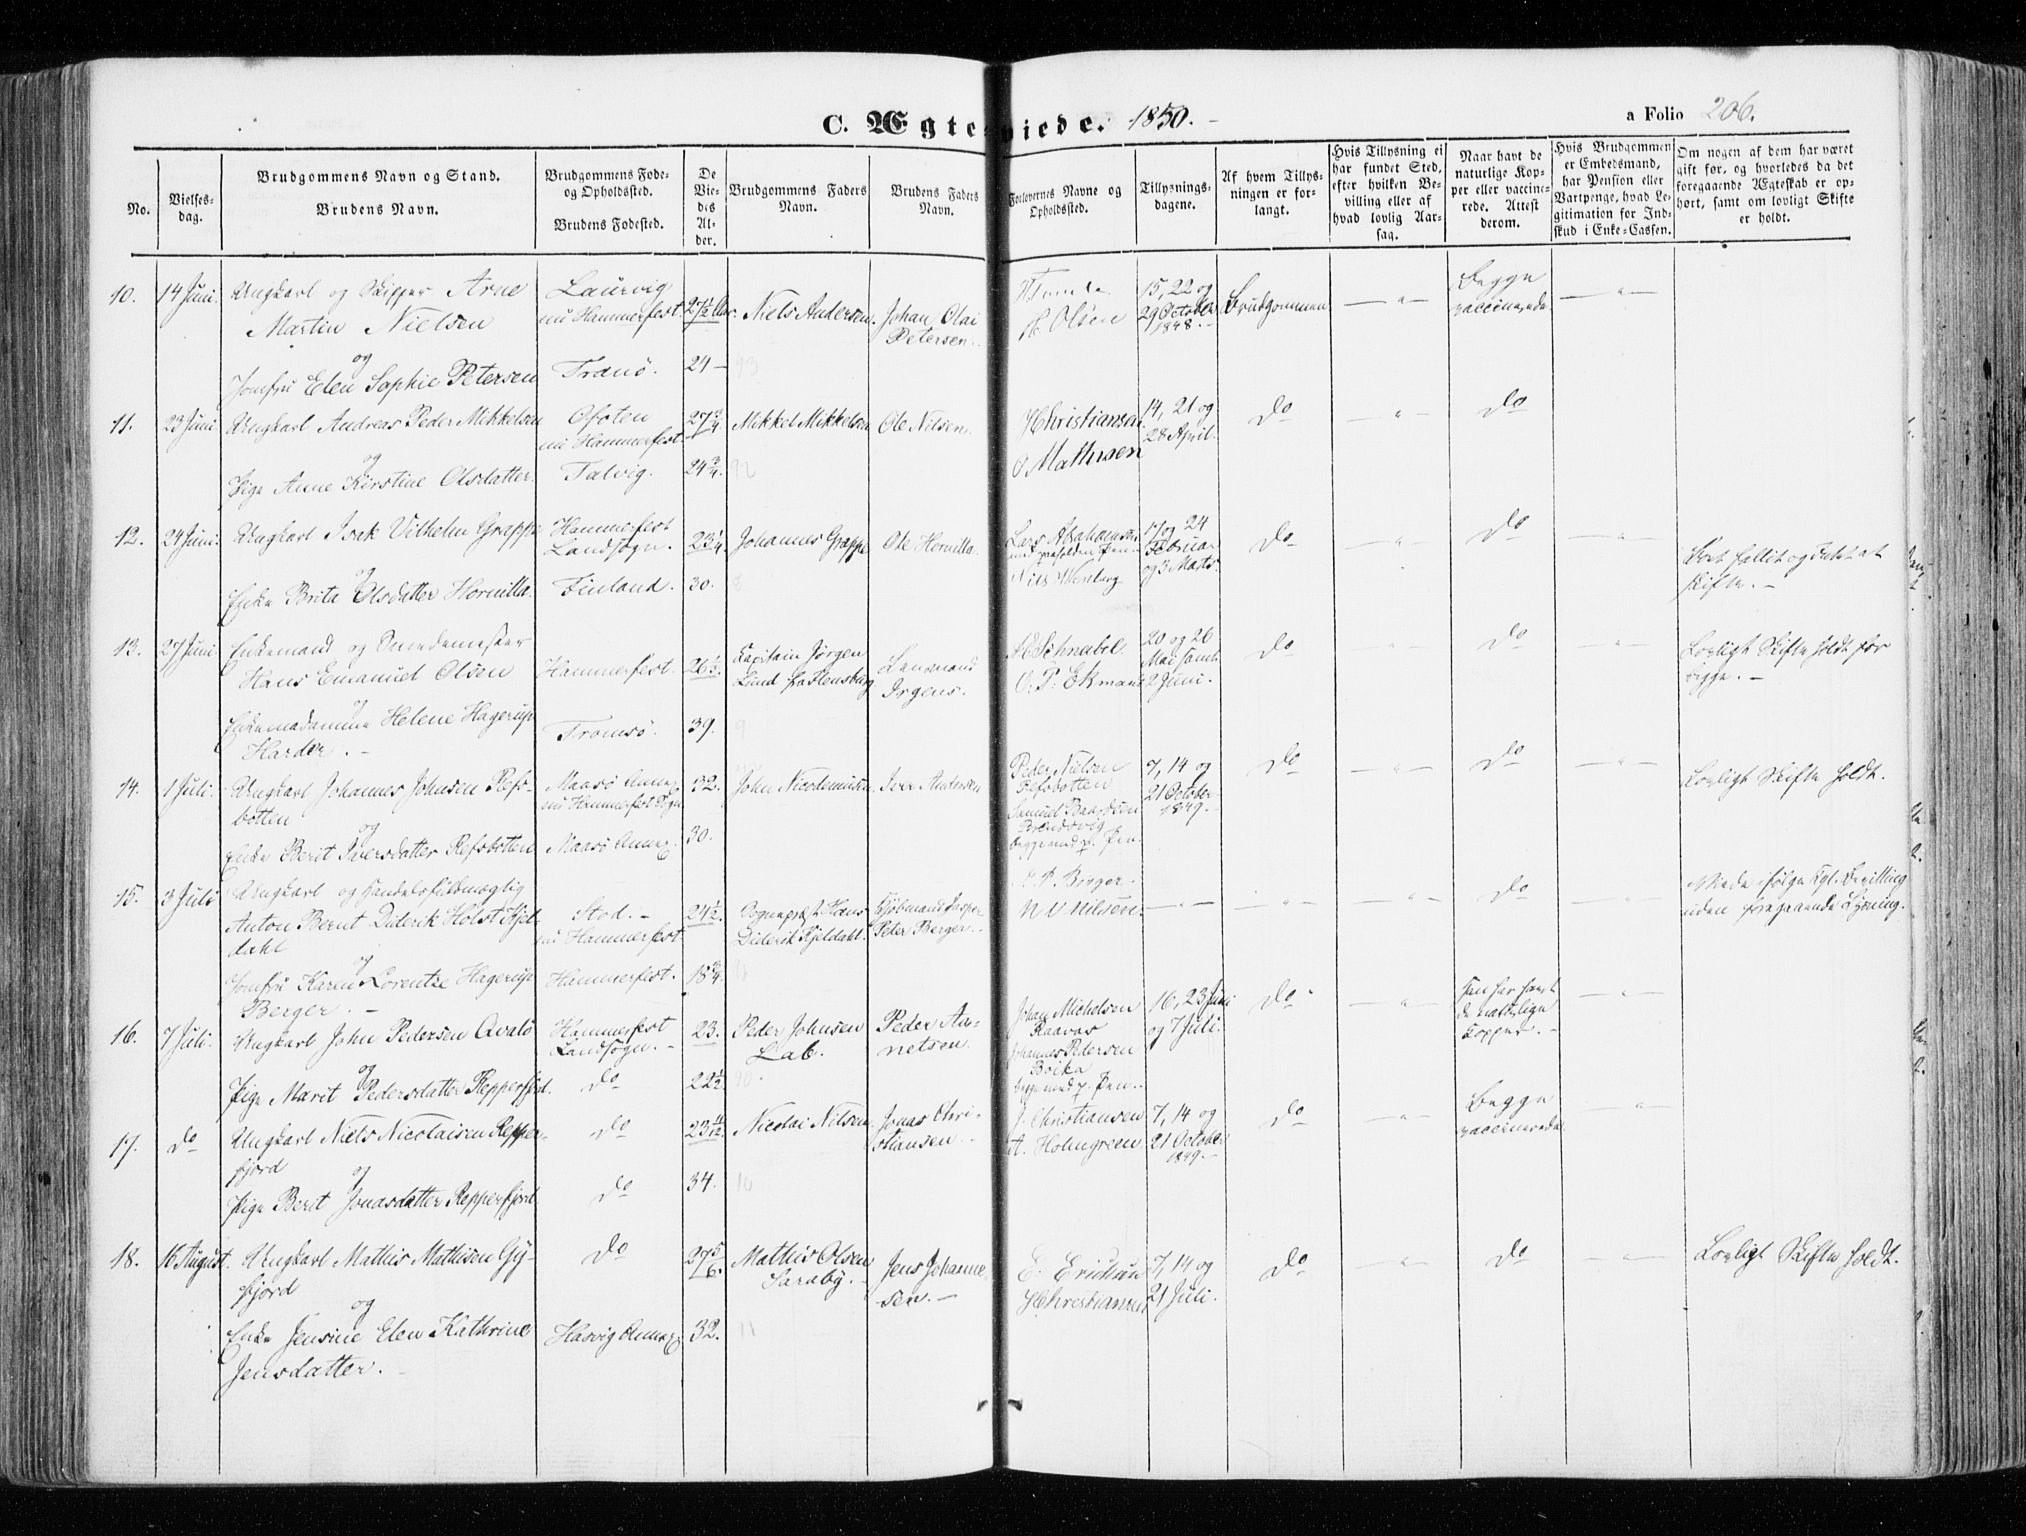 C. Ægteviede. 1850.
a Folio 206.
No.
Vielses-
dag.
Brudgommens Navn og Stand.
Brudens Navn.
Brudgommens Føde-
og Opholdssted.
Brudens Fødested.
De
Vie-
des
Al-
der.
Brudgommens Faders
Navn.
Brudens Faders
Navn.
Forlovernes Navne og
Opholdssted.
Tillysnings-
dagene.
Af hvem Tillys-
ningen er for-
langt.
Hvis Tillysning ei
har fundet Sted,
efter hvilken Be-
villing eller af
hvad lovlig Aar-
sag.
Naar havt de
naturlige Kop-
per eller vaccine-
rede. Attest
derom.
Hvis Brudgommen
er Embedsmand,
har Pension eller
Vartpenge, hvad Le-
gitimation for Ind-
skud i Enke-Cassen.
Om nogen af dem har været
gift før, og hvorledes da det
foregaaende Ægteskab er op-
hørt, samt om lovligt Skifte
er holdt.
10. 14 Juni. Ungkarl og Skipper Arne
Martin Nielsen
og
Jomfru Elen Sophie Petersen
Laurvig
nu Hammerfest
Tranö.
27½ Aar.
24 -
Niels Andersen.
Johan Olai
Petersen.
H. Olsen
15, 22 og
29 October
1848.
Brudgommen
Begge
vaccinerede
11. 23 Juni Ungkarl Andreas Peder Mikkelsen
og
Pige Anne Kirstine Olsdatter.
Ofoten
nu Hammerfest
Talvig.
27¾
24¾.
Mikkel Mikkelsen
Ole Nilsen.
H Christiansen
O Mathisen
14, 21 og
28 April.
Do
Do
12. 24 Juni. Ungkarl Isak Vilhelm Grappe
og
Enke Brita Olsdatter Hornilla.
Hammerfest
Landsogn.
Finland.
23¼
30.
Johannes Grappe
Ole Hornilla
Lars Abrahamsen
med paaholden Pen
Nils Wenberg
17 og 24
Februar
og 3 Marts.
Do
Do
Boet fallit og intet at
skifte.
13. 27 Juni Enkemand og Smedemester
Hans Emanuel Olsen
og
Enkemadamme Helene Hagerup
Harder.
Hammerfest.
Tromsö.
26½.
39.
Capitain Jörgen
Lund fra Flensburg
Lensmand
Irgens.
A Schnabel.
O. P. Ekmann
20 og 26
Mai samt
2 Juni.
Do
Do
Lovligt Skifte holdt for
begge.
14. 1 Juli. Ungkarl Johannes Johnsen Refs-
botten
og
Enke Berit Iversdatter Refsbotten
Maasö Annex
nu Hammerfest Sogn
Maasö Annex
32.
30.
John Nicodemusen
Iver Andersen
Peder Nielsen
Refsbotten
Samuel Baardsen
begge med p. Pen.
7, 14 og
21 October
1849.
Do
Do
Lovligt Skifte holdt.
15. 3 Juli Ungkarl og Handelsfuldmægtig
Anton Bernt Diderik Holst Kjel-
dahl
og
Jomfru Karen Lorentze Hagerup
Berger.
Stod.
nu Hammerfest
Hammerfest.
24½
18¾
Sognepræst Hans
Diderik Kjeldahl.
Kjöbmand Jasper
Peter Berger.
J. P. Berger.
N U Nilsen.
Do
Viede ifølge Kgl. Bevilling
uden foregaaende Lysning.
16. 7 Juli. Ungkarl John Pedersen Qvalö
og
Pige Marit Pedersdatter Repperfjord.
Hammerfest
Landsogn.
Do
23.
22½
Peder Johnsen
Lab.
Peder An-
netsen
Johan Michelsen
Johannes Pedersen
begge med p. Pen.
16, 23 Juni
og 7 Juli.
Do
Han har havt
de naturlige
Kopper.
17. Do Ungkarl Niels Nicolaisen Repper-
fjord
og
Pige Berit Jonasdatter Repperfjord
Do
Do
23 11/12.
34.
Nicolai Nilsen
Jonas Chri-
stiansen
J. Christiansen
A. Holmgreen
7, 14 og
21 October
1849.
Do
Begge
vaccinerede
18. 16 August. Ungkarl Mathis Mathisen Gy-
fjord
og
Enke Jensine Elen Kathrine
Jensdatter.
Do
Hasvig Annex
27 5/6.
32.
Mathis Olsen
Saraby.
Jens Johanne-
sen.
H Christiansen
7, 14 og
21 Juli.
Do
Do
Lovligt Skifte holdt.